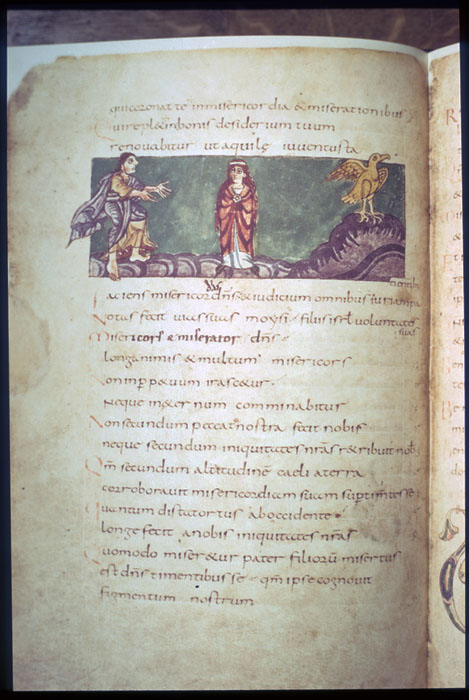 qui coronat te in misericordia & miserationibus
Qui repl& in bonis desiderium tuum
renovabitur ut aquilę iuventus tua
Faciens misericordias dns & iudicium omnibus iniuriam pa
tientibus
Notas fecit vias suas moysi filiis isrl voluntates
suas
Misericors & miserator dns
longanimis & multum misericors
Non in pp&uum irasc&ur
Neque in &ernum comminabitur
Non secundum peccata nostra fecit nobis
neque secundum iniquitates nras r&ribuit nob
Qm secundum altitudinē caeli a terra
corroboravit misericordiam suam sup timentes se
Quantum distat ortus ab occidente
longe fecit a nobis iniquitates nras
Quomodo miser&ur pater filiorū misertus
est dns timentibus se qm ipse cognovit
figmentum nostrum